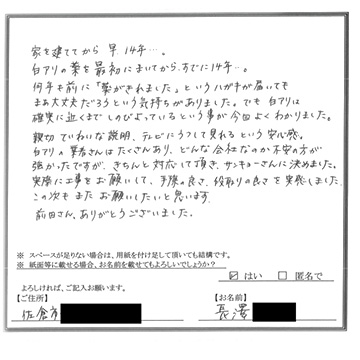 家を建ててから 早、14年…。
白アリの薬を最初にまいてから、すでに14年…。
何年も前に「薬がきれました」というハガキが届いても
まぁ大丈夫だろうという気持ちがありました。でも白アリは
確実に近くまでしのびよっているという事が今回よくわかりました。
親切ていねいな説明、テレビにうつして見れるという安心感。
白アリの業者さんはたくさんあり、どんな会社なのか不安の方が
強かったですが、きちんと対応して頂き、サンキョーさんに決めました。
実際に工事をお願いして、手際の良さ、段取りの良さを実感しました。
この次もまたお願いしたいと思います。
前田さん、ありがとうございました。
※ スペースが足りない場合は、用紙を付け足して頂いても結構です。
※ 紙面等に載せる場合、お名前を載せてもよろしいでしょうか?
☑ はい □ 匿名で
よろしければ、ご記入お願います。
【ご住所】 【お名前】
佐倉市 長澤